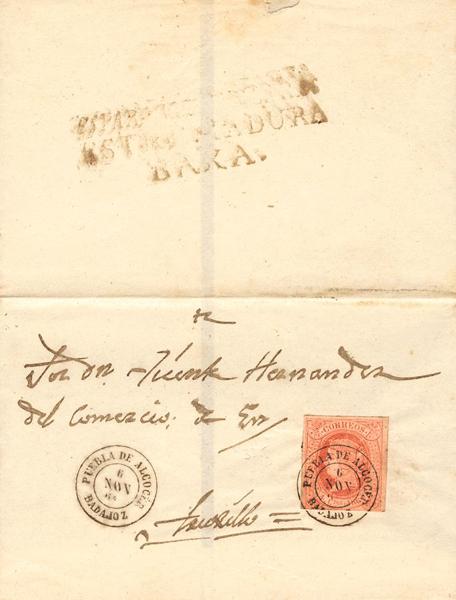 ESTREMADURA
BAXA.
Sor Dn. Vicente Hernandez
del Comercio, de En
CORREOS
PUEBLA DE ALCOCER
6
NOV
64
BADAJOZ
PUEBLA DE ALCOCER
6
NOV
BADAJOZ
Truxillo =